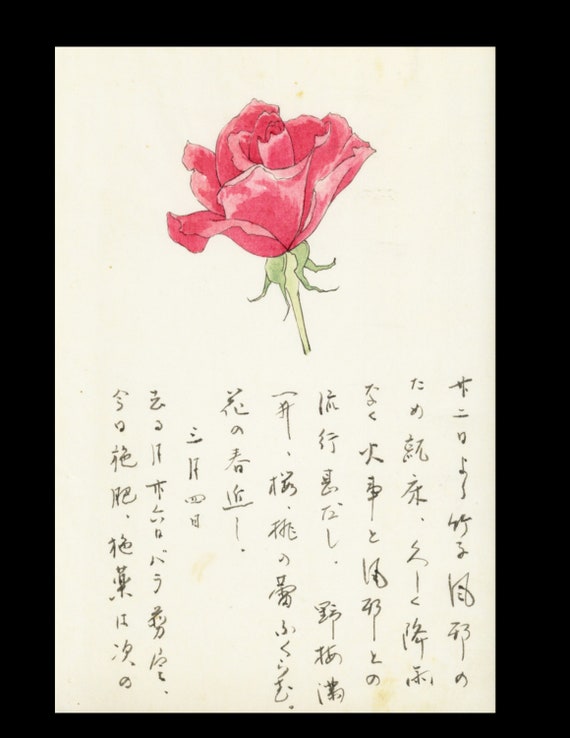 廿二日より竹子風邪の
ため就床、久しく降雨
なく火事と風邪との
流行甚だし。野梅満
開、桜、桃の蕾ふくらむ。
花の春近し。
三月四日
去る月廿六日バラ剪定、
今日施肥、施薬は次の